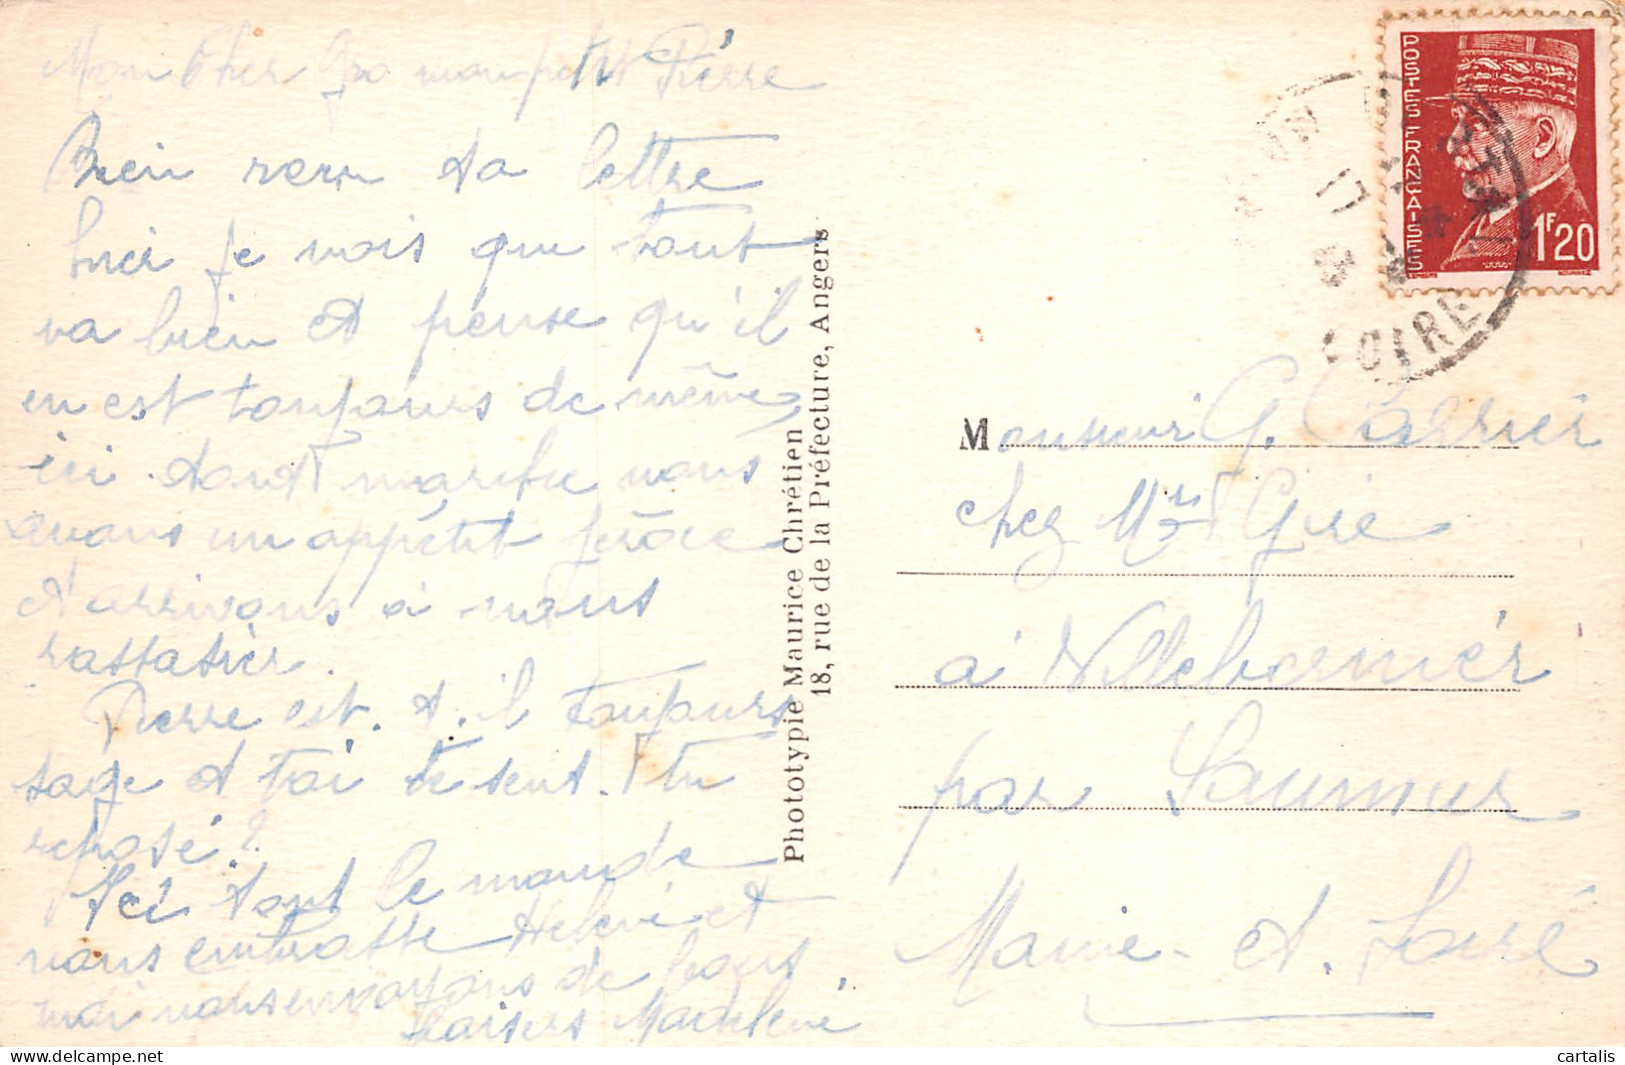 Mon cher Gyo mon petit Pierre
Bien reçu ta lettre
Luci je vois que tout
va bien et pense qu'il
en est toujours de même
ici. tout marche nous
avons un appétit féroce
et arrivons à nous
rassasier.
Pierre est-il toujours
sage et toi te sens-tu
reposé?
Ici tout le monde
vous embrasse Helene et
moi vous envoyons de bons
baisers Madelené
Phototypie Maurice Chrétien
18, rue de la Préfecture, Angers
POSTES FRANÇAISES
1F20
17
LOIRE
Monsieur G.
chez Mr Gire
à Villebernier
par Saumur
Maine-et-Loire
cartalis